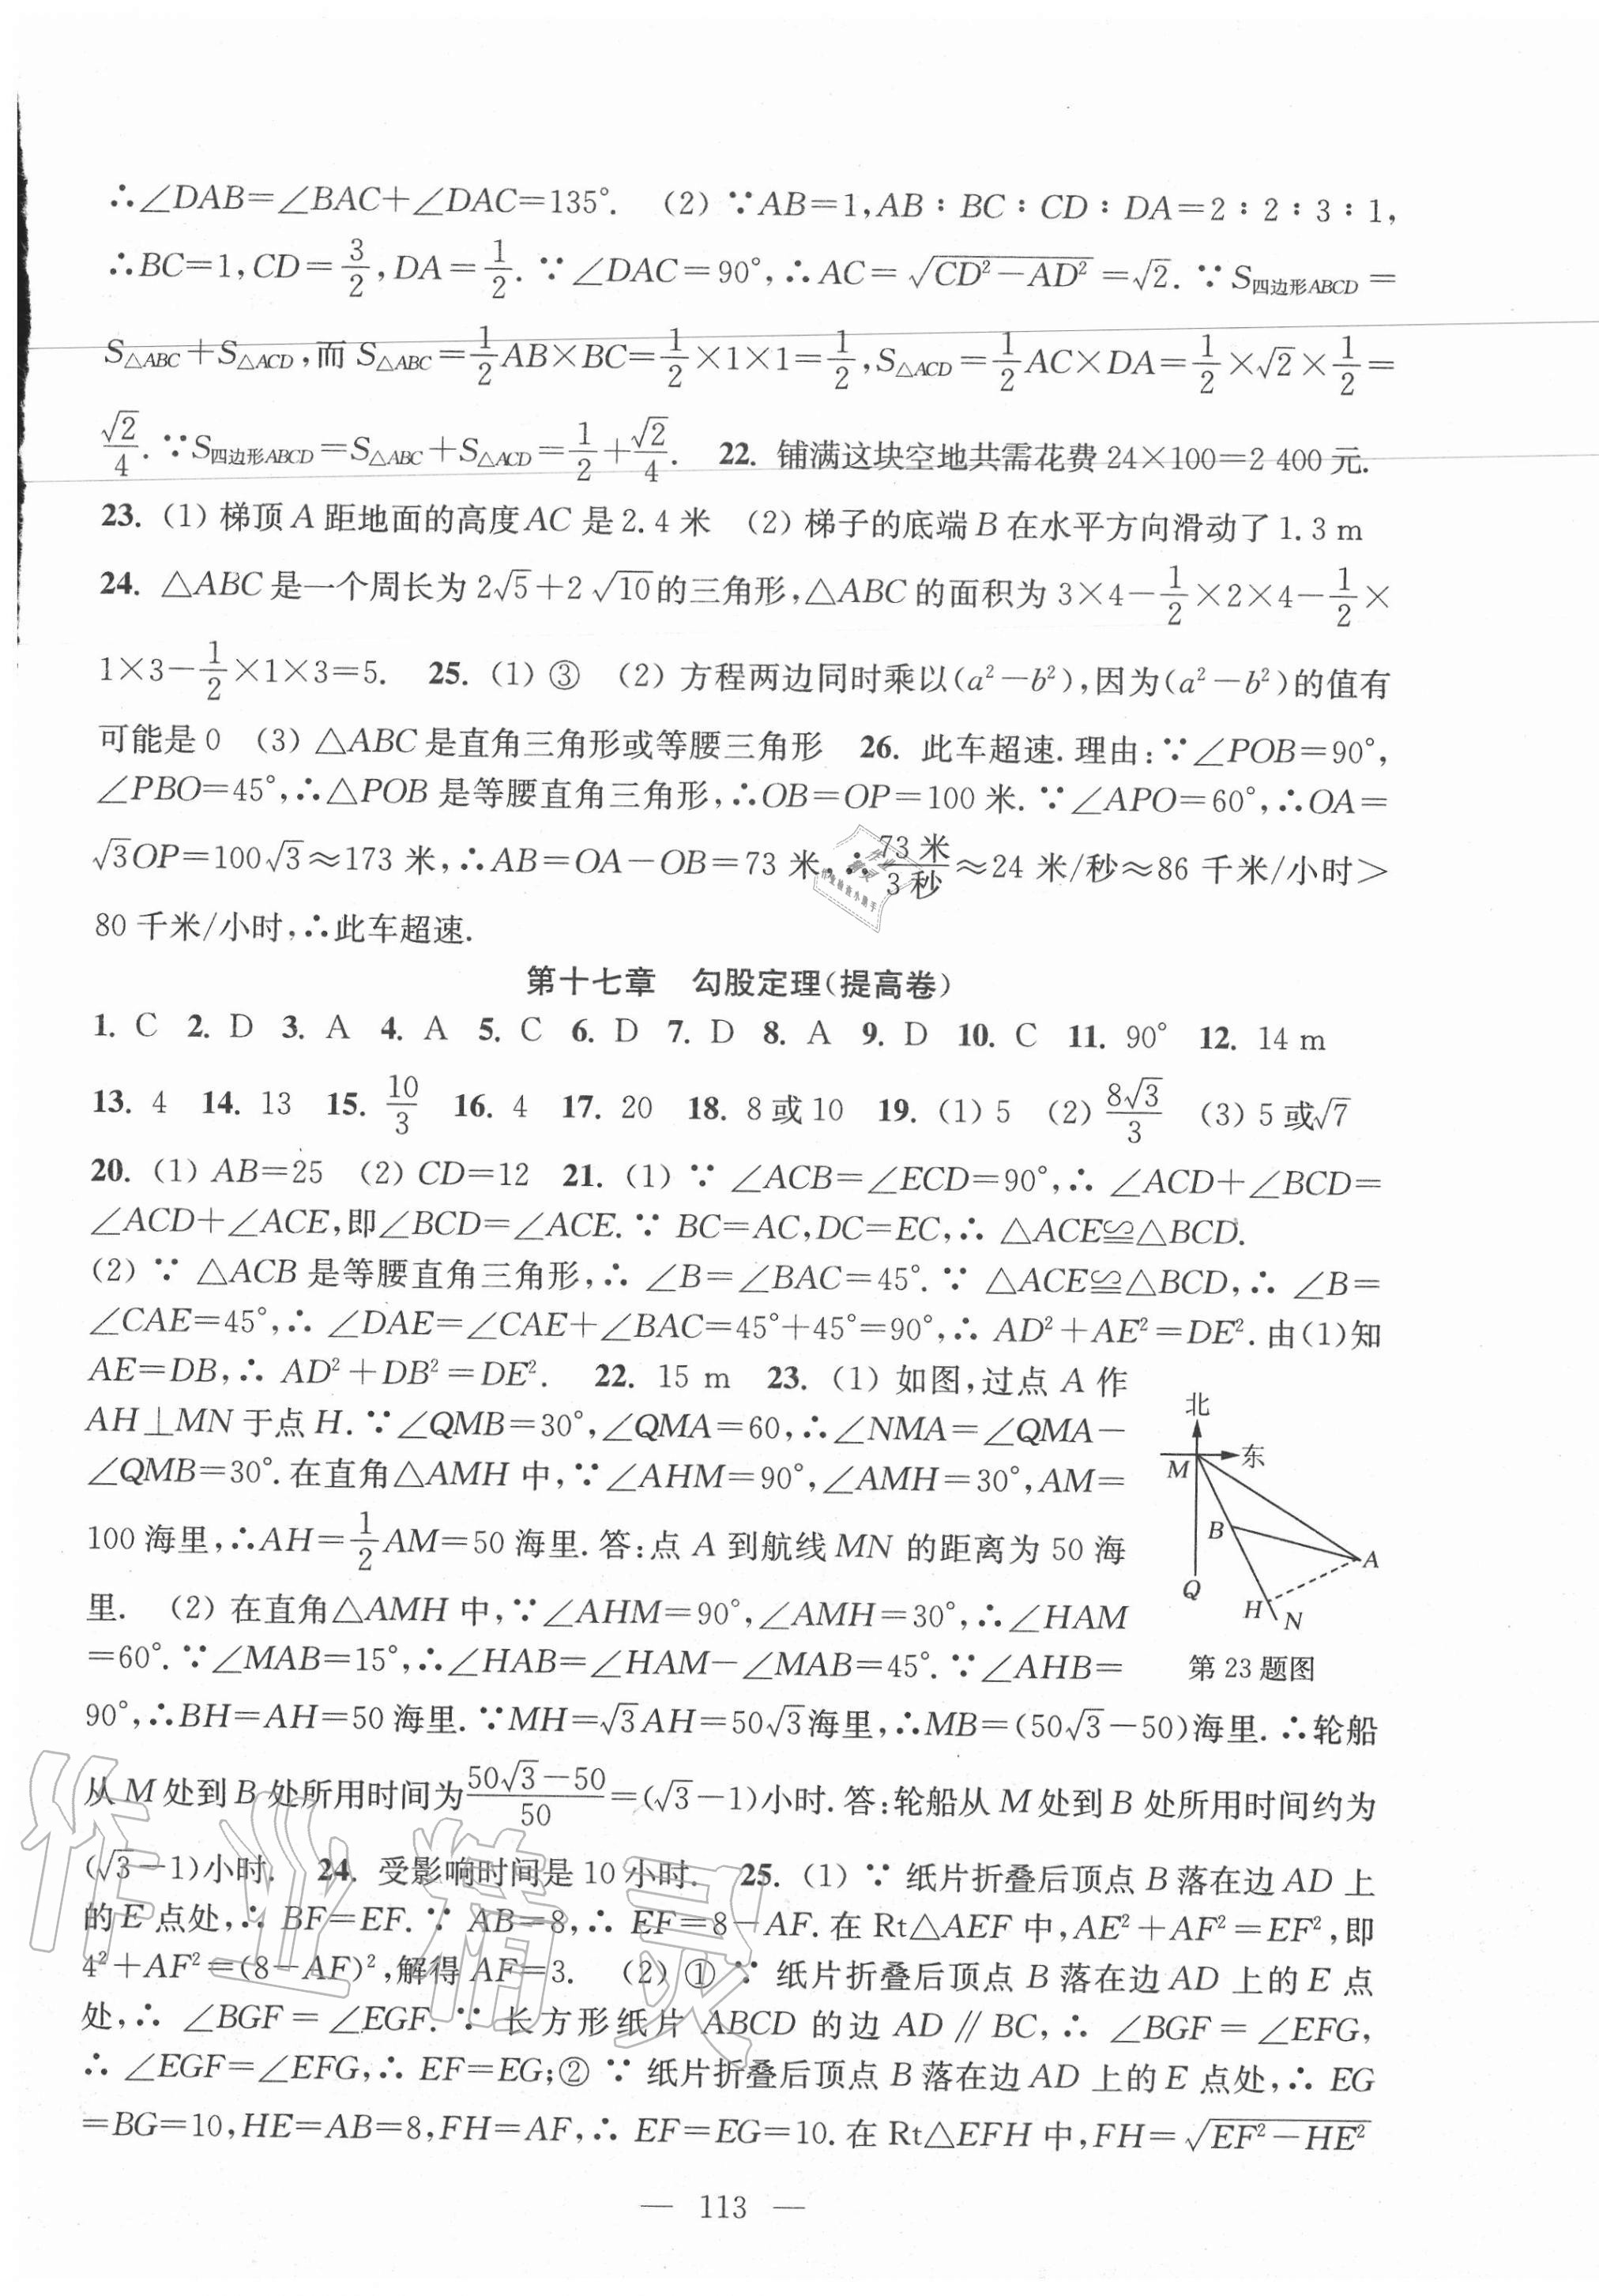 ∴∠DAB=∠BAC+∠DAC=135°. (2) ∵AB=1,AB∶BC∶CD∶DA=2∶2∶3∶1,
∴BC=1,CD=3/2,DA=1/2. ∵∠DAC=90°,∴AC=√(CD²-AD²)=√2. ∵S四边形ABCD=
S△ABC+S△ACD,而 S△ABC=1/2AB×BC=1/2×1×1=1/2,S△ACD=1/2AC×DA=1/2×√2×1/2=
√2/4. ∵S四边形ABCD=S△ABC+S△ACD=1/2+√2/4. 22. 铺满这块空地共需花费 24×100=2 400 元.
23. (1) 梯顶 A 距地面的高度 AC 是 2.4 米 (2) 梯子的底端 B 在水平方向滑动了 1.3 m
24. △ABC 是一个周长为 2√5+2√10的三角形,△ABC 的面积为 3×4-1/2×2×4-1/2×
1×3-1/2×1×3=5. 25. (1) ③ (2) 方程两边同时乘以(a²-b²),因为(a²-b²)的值有
可能是 0 (3) △ABC 是直角三角形或等腰三角形 26. 此车超速. 理由:∵∠POB=90°,
∠PBO=45°,∴△POB 是等腰直角三角形,∴OB=OP=100 米. ∵∠APO=60°,∴OA=
√3OP=100√3≈173 米,∴AB=OA-OB=73 米,∴73 米/3 秒≈24 米/秒≈86 千米/小时>
80 千米/小时,∴此车超速.
第十七章 勾股定理(提高卷)
1. C 2. D 3. A 4. A 5. C 6. D 7. D 8. A 9. D 10. C 11. 90° 12. 14 m
13. 4 14. 13 15. 10/3 16. 4 17. 20 18. 8 或 10 19. (1) 5 (2) 8√3/3 (3) 5 或√7
20. (1) AB=25 (2) CD=12 21. (1) ∵ ∠ACB=∠ECD=90°,∴ ∠ACD+∠BCD=
∠ACD+∠ACE,即∠BCD=∠ACE. ∵ BC=AC,DC=EC,∴ △ACE≌△BCD.
(2) ∵ △ACB 是等腰直角三角形,∴ ∠B=∠BAC=45°. ∵ △ACE≌△BCD,∴ ∠B=
∠CAE=45°,∴ ∠DAE=∠CAE+∠BAC=45°+45°=90°,∴ AD²+AE²=DE². 由(1)知
AE=DB,∴ AD²+DB²=DE². 22. 15 m 23. (1) 如图,过点 A 作
AH⊥MN 于点 H. ∵∠QMB=30°,∠QMA=60,∴∠NMA=∠QMA-
∠QMB=30°. 在直角△AMH 中,∵∠AHM=90°,∠AMH=30°,AM=
100 海里,∴AH=1/2AM=50 海里. 答:点 A 到航线 MN 的距离为 50 海
里. (2) 在直角△AMH 中,∵∠AHM=90°,∠AMH=30°,∴∠HAM
=60°. ∵∠MAB=15°,∴∠HAB=∠HAM-∠MAB=45°. ∵∠AHB=
北
东
M
B
A
Q
H
N
第 23 题图
90°,∴BH=AH=50 海里. ∵MH=√3AH=50√3海里,∴MB=(50√3-50)海里. ∴轮船
从 M 处到 B 处所用时间为(50√3-50)/50=(√3-1)小时. 答:轮船从 M 处到 B 处所用时间约为
(√3-1)小时. 24. 受影响时间是 10 小时. 25. (1) ∵ 纸片折叠后顶点 B 落在边 AD 上
的 E 点处,∴ BF=EF. ∵ AB=8,∴ EF=8-AF. 在 Rt△AEF 中,AE²+AF²=EF²,即
4²+AF²=(8-AF)²,解得 AF=3. (2) ① ∵ 纸片折叠后顶点 B 落在边 AD 上的 E 点
处,∴ ∠BGF=∠EGF. ∵ 长方形纸片 ABCD 的边 AD∥BC,∴ ∠BGF=∠EFG,
∴ ∠EGF=∠EFG,∴ EF=EG;② ∵ 纸片折叠后顶点 B 落在边 AD 上的 E 点处,∴ EG
=BG=10,HE=AB=8,FH=AF,∴ EF=EG=10. 在 Rt△EFH 中,FH=√(EF²-HE²)
作业精灵
— 113 —